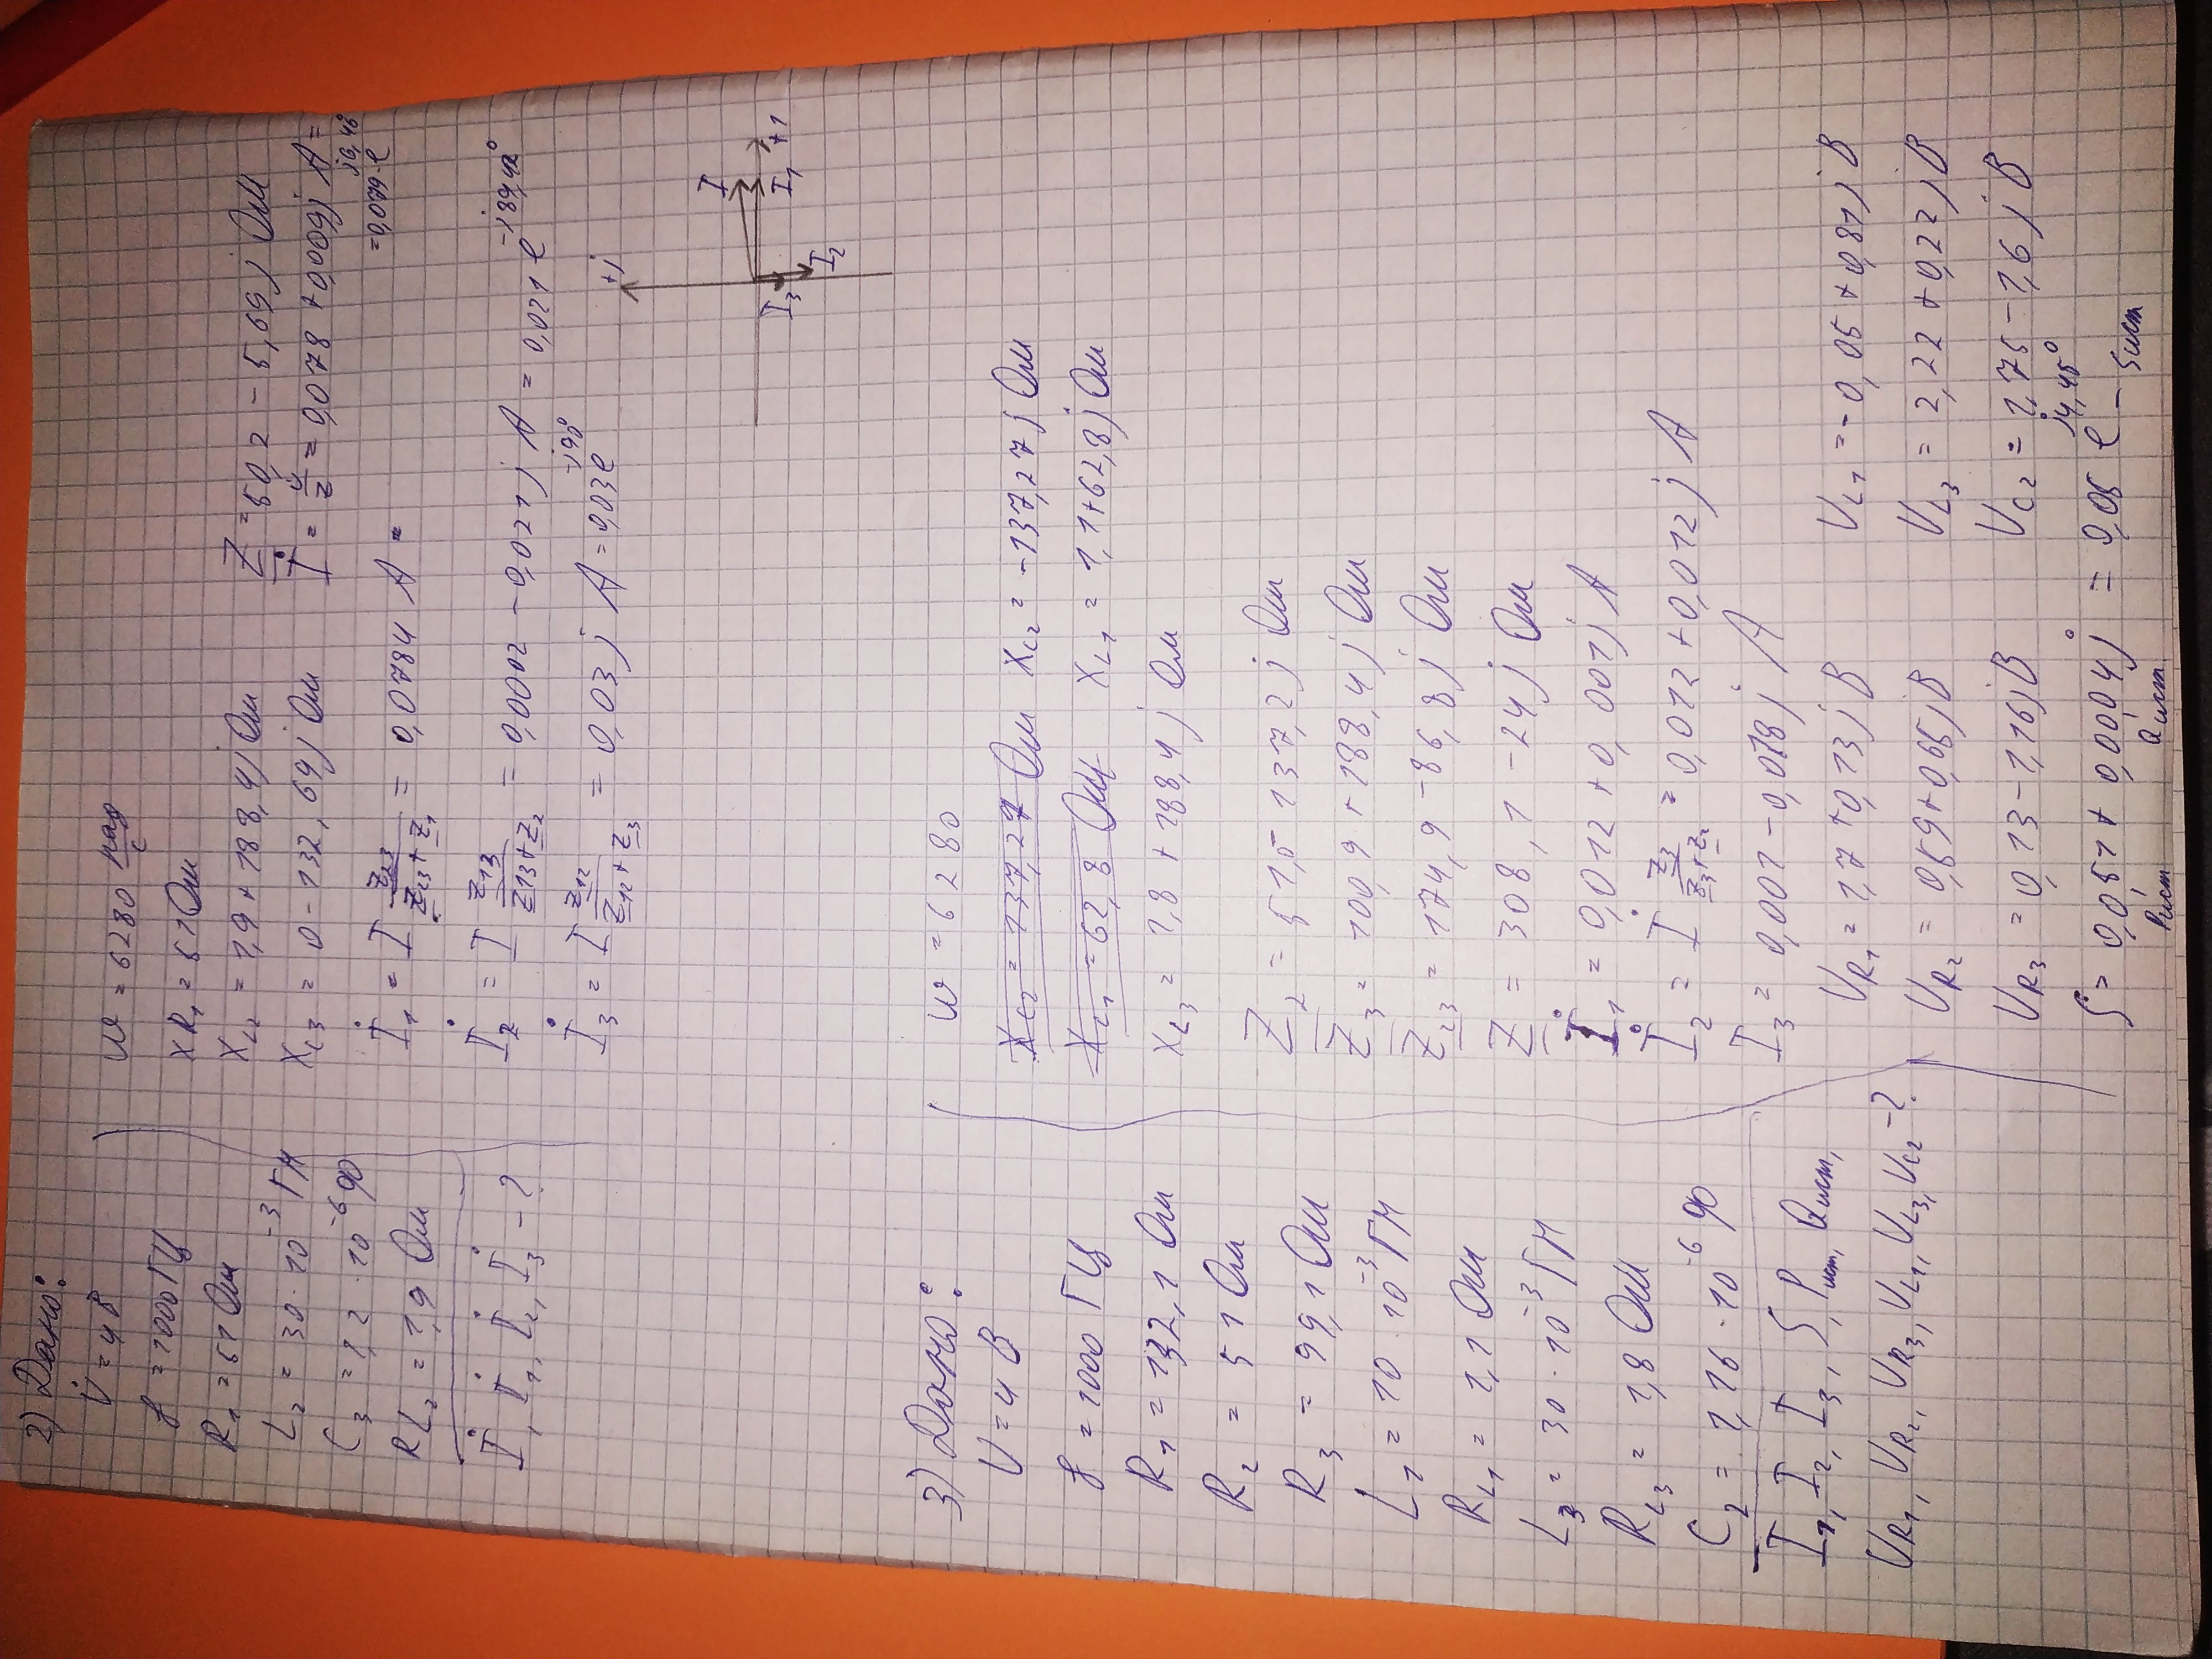 2) Дано:
U̇ = 4 В
f = 1000 Гц
R₁ = 51 Ом
L₂ = 30·10⁻³ Гн
C₃ = 1,2·10⁻⁶ Ф
RL₂ = 1,9 Ом
İ, İ₁, İ₂, İ₃ - ?
W = 6280 рад/с
XR₁ = 51 Ом
XL₂ = 1,9 + 188,4j Ом
XC₃ = 0 - 132,69j Ом
Z = 50,2 - 5,69j Ом
İ = U̇/Z = 0,078 + 0,009j А =
= 0,079·e^j6,46°
İ₁ = I Z₂₃/(Z₂₃+Z₁) = 0,0784 А =
İ₂ = I Z₁₃/(Z₁₃+Z₂) = 0,0002 - 0,021j А = 0,021 e^-j89,42°
İ₃ = I Z₁₂/(Z₁₂+Z₃) = 0,03j А = 0,03e^-j90°
+j
I
I₃
I₁
+1
I₂
3) Дано:
U = 4 В
f = 1000 Гц
R₁ = 132,1 Ом
R₂ = 51 Ом
R₃ = 99,1 Ом
L₁ = 10·10⁻³ Гн
RL₁ = 1,1 Ом
L₃ = 30·10⁻³ Гн
RL₃ = 1,8 Ом
C₂ = 1,16·10⁻⁶ Ф
I₁, I₂, I₃, S, Pист, Qист,
UR₁, UR₂, UR₃, UL₁, UL₃, UC₂ - ?
W = 6280
XC₂ = 137,27 Ом XC₂ = -137,27j Ом
XL₁ = 62,8 Ом XL₁ = 1,1+62,8j Ом
XL₃ = 1,8 + 188,4j Ом
Z₂ = 51,5 137,2j Ом
Z₃ = 100,9 + 188,4j Ом
Z₂₃ = 174,9 - 86,8j Ом
Z = 308,1 - 24j Ом
İ₁ = 0,012 + 0,001j А
İ₂ = İ Z₃/(Z₃+Z₂) = 0,012 + 0,012j А
I₃ = 0,001 - 0,018j А
UR₁ = 1,7 + 0,13j В UL₁ = -0,05 + 0,81j В
UR₂ = 0,59 + 0,65j В UL₃ = 2,22 + 0,22j В
UR₃ = 0,13 - 1,16j В UC₂ = 1,75 - 1,6j В
S = 0,051 + 0,0004j = 0,05 e^j4,45° - Sист
Pист Qист